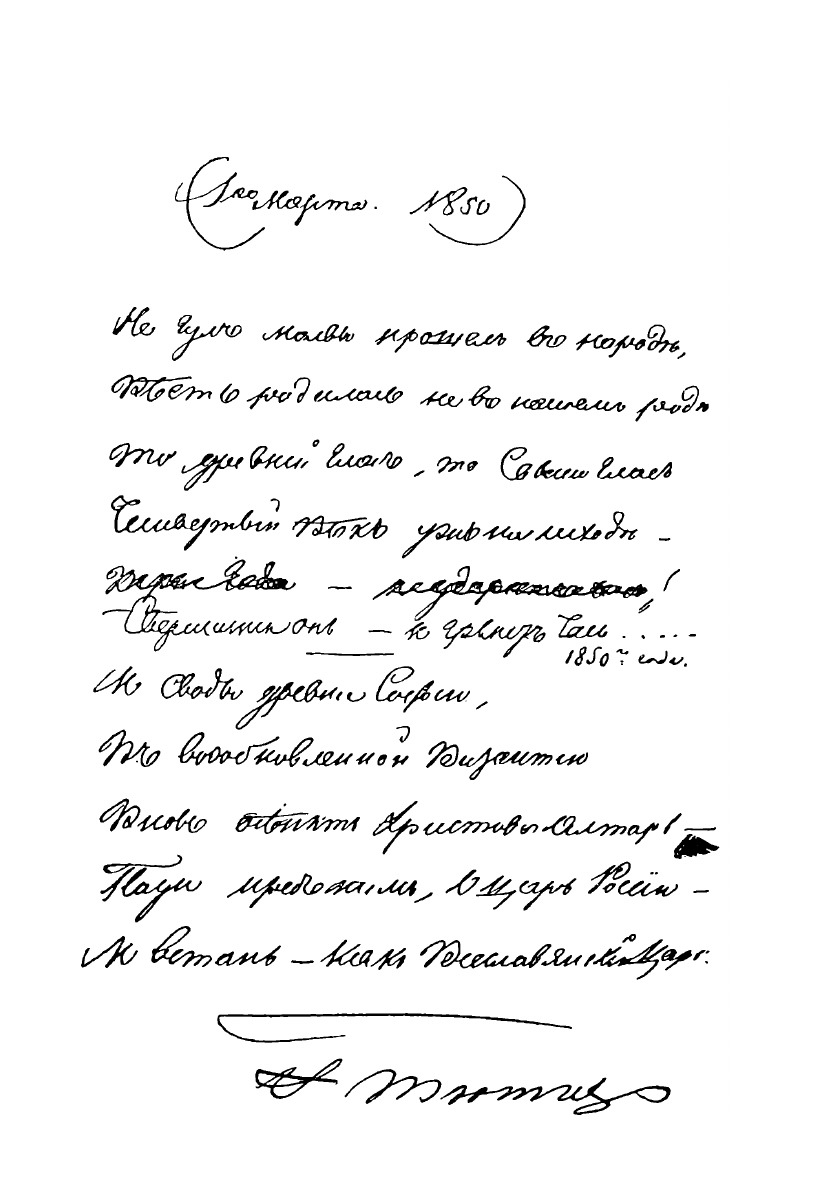 (1го Марта. 1850)
Не гулъ молвы прошелъ въ народѣ,
Вѣсть родилась не въ нашемъ родѣ
То древній гласъ, то Свыше гласъ
Четвертый Вѣкъ ужъ на исходѣ –
Свершится онъ – и грянетъ Часъ .....
1850го года.
И Своды древніе Софіи,
Въ возобновленной Византіи
Вновь осѣнятъ Христовъ Олтарь –
Пади предъ нимъ, о Царь Россіи –
И встань – какъ Всеславянскій Царь.
Ѳ. Тютчевъ